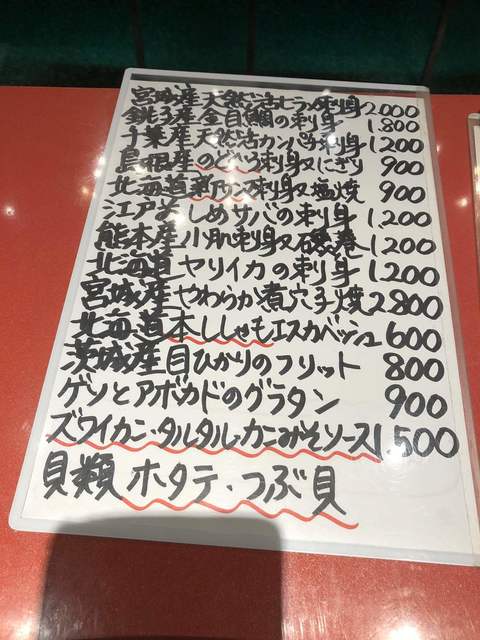 宮城産天然活ヒラメ刺身 2000
銚子産金目鯛の刺身 1,800
千葉産天然活カンパチ刺身 1,200
島根産のどぐろ刺身又にぎり 900
北海道新サンマ刺身又塩焼 900
江戸前しめサバの刺身 1,200
熊本産小肌刺身又磯巻 1,200
北海道ヤリイカの刺身 1,200
宮城産やわらか煮穴子焼 2800
北海道本ししゃもエスカベッシュ 600
茨城産目ひかりのフリット 800
ゲソとアボカドのグラタン 900
ズワイカニ・タルタル・カニみそソース 1,500
貝類 ホタテ・つぶ貝